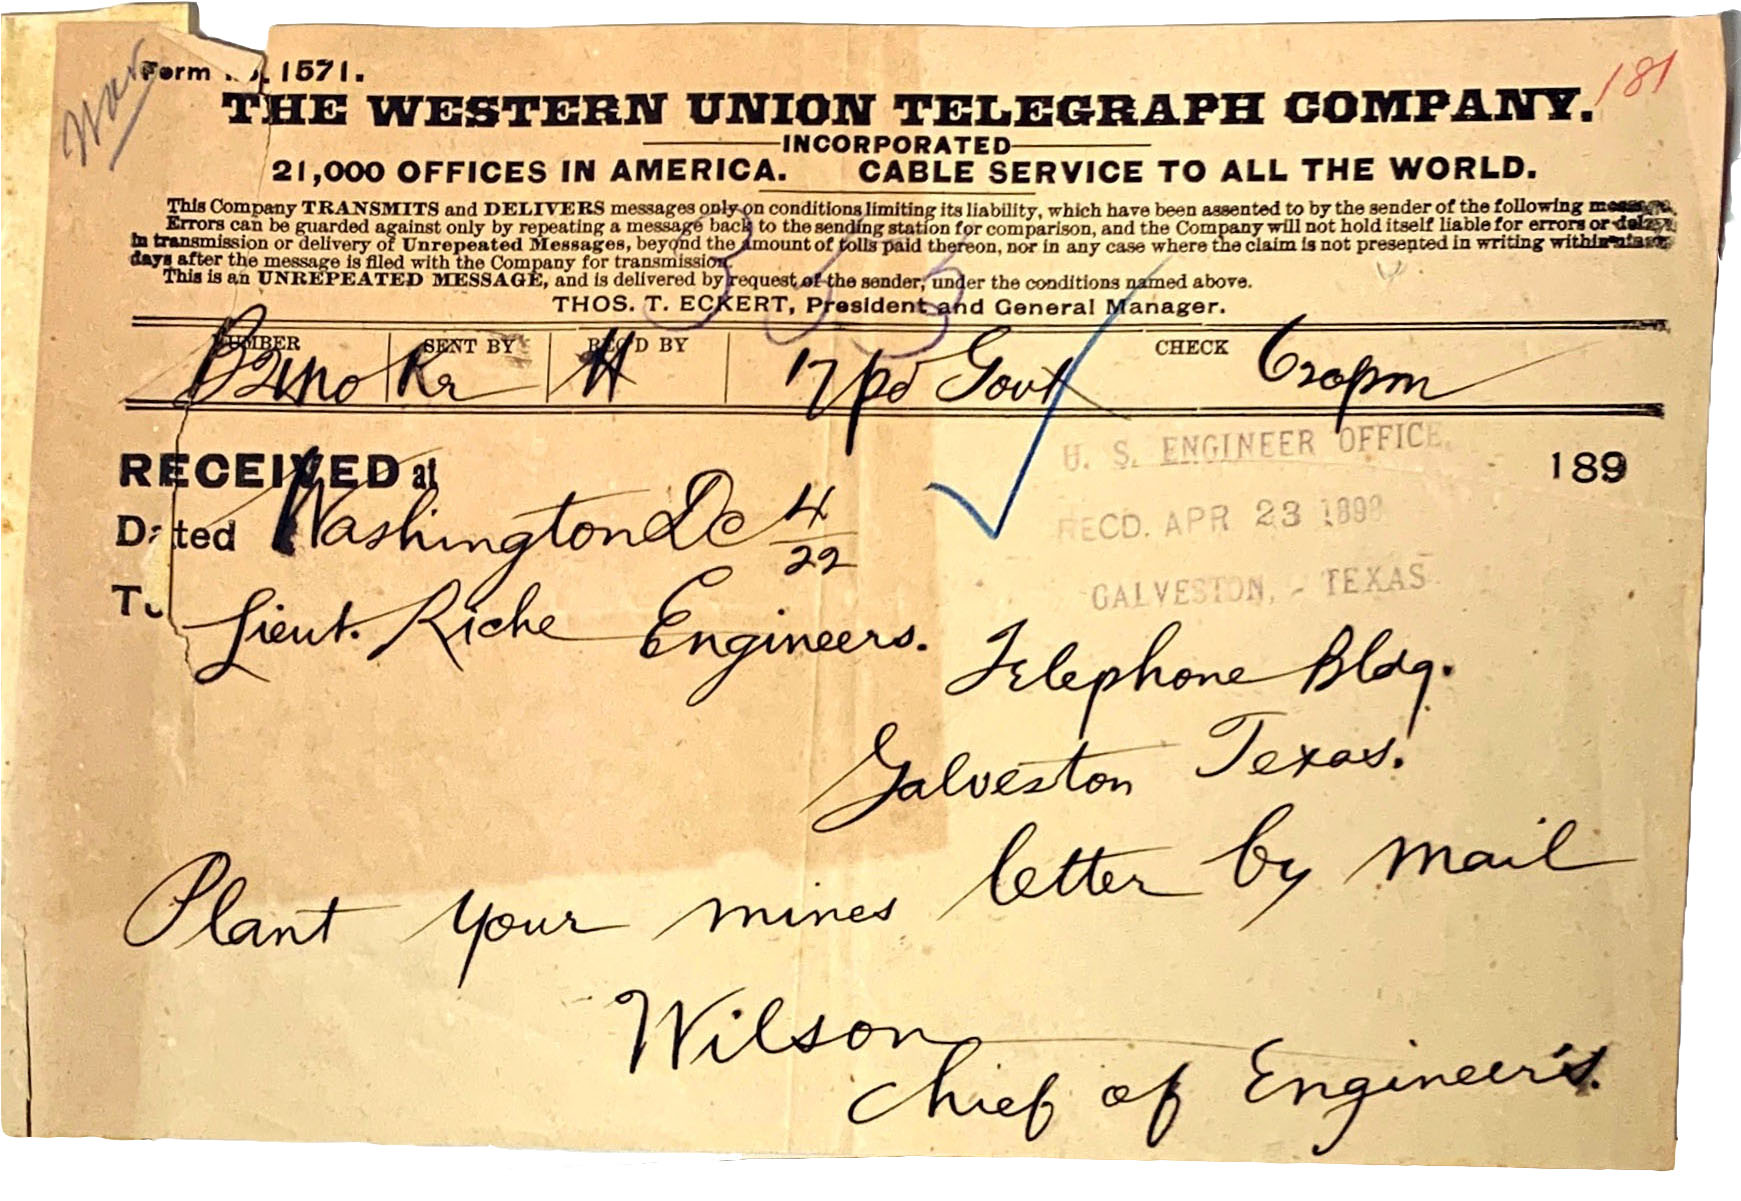 War
Form No. 1571.
181
THE WESTERN UNION TELEGRAPH COMPANY.
INCORPORATED
21,000 OFFICES IN AMERICA. CABLE SERVICE TO ALL THE WORLD.
This Company TRANSMITS and DELIVERS messages only on conditions limiting its liability, which have been assented to by the sender of the following message.
Errors can be guarded against only by repeating a message back to the sending station for comparison, and the Company will not hold itself liable for errors or delays
in transmission or delivery of Unrepeated Messages, beyond the amount of tolls paid thereon, nor in any case where the claim is not presented in writing within sixty
days after the message is filed with the Company for transmission.
This is an UNREPEATED MESSAGE, and is delivered by request of the sender, under the conditions named above.
THOS. T. ECKERT, President and General Manager.
333
NUMBER SENT BY REC'D BY CHECK
Kr H 17 pd Govt 620pm
RECEIVED at 189
Dated Washington DC 4/22
To Lieut. Riche Engineers.
U. S. ENGINEER OFFICE.
RECD. APR 23 1898
GALVESTON, - TEXAS
Telephone Bldg.
Galveston Texas.
Plant your mines letter by mail
Wilson
Chief of Engineers.